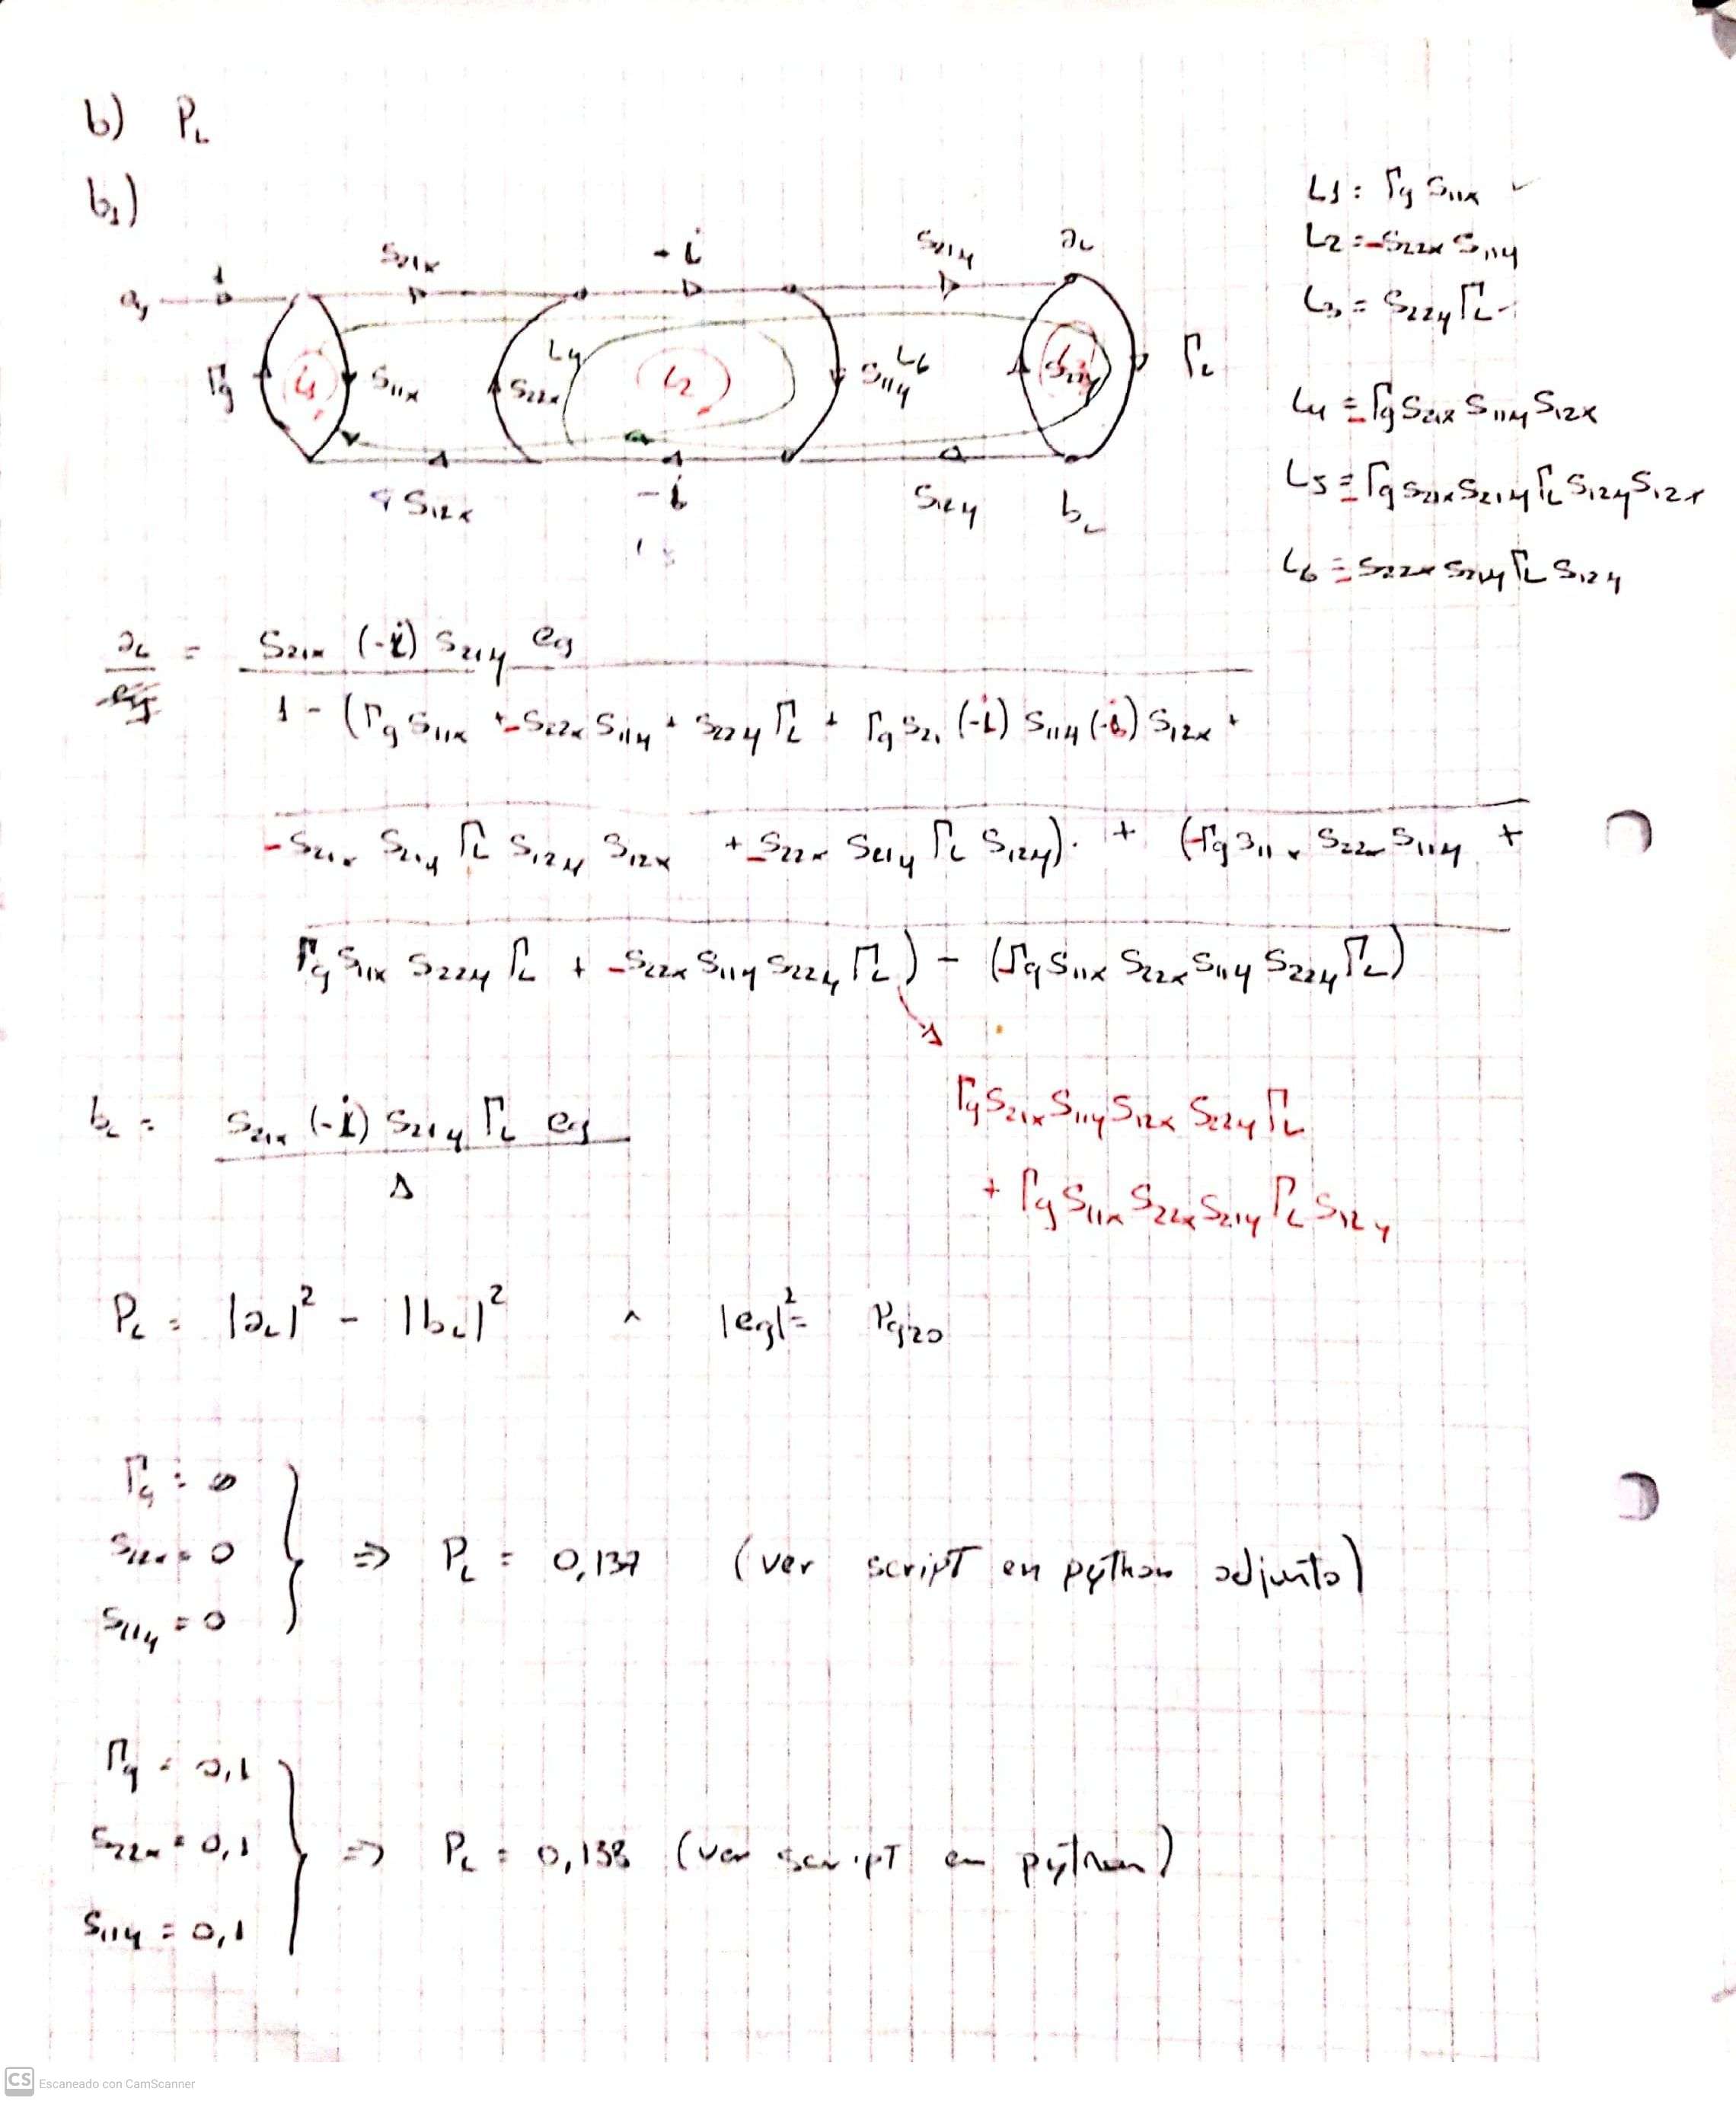 b) P_L
b₁)
L1: Γg S11x ✓
L2 = -S22x S11y
L3 = S22y ΓL
L4 = -Γg S21x S11y S12x
L5 = -Γg S21x S21y ΓL S12y S12x
L6 = -S22x S21y ΓL S12y
1 S21x -i S21y aL
Γg L1 S11x S22x L4 L2 S11y L6 S22y ΓL
S12x -i S12y bL
aL = S21x (-i) S21y eg
1 - (Γg S11x + -S22x S11y + S22y ΓL + Γg S21 (-i) S11y (-i) S12x +
-S21x S21y ΓL S12y S12x + -S22x S21y ΓL S12y) + (-Γg S11x S22x S11y +
Γg S11x S22y ΓL + -S22x S11y S22y ΓL) - (-Γg S11x S22x S11y S22y ΓL)
Γg S21x S11y S12x S22y ΓL
+ Γg S11x S22x S21y ΓL S12y
bL = S21x (-i) S21y ΓL eg
Δ
PL = |aL|² - |bL|² ^ |eg|² =
Γg = 0
S22x = 0 ⇒ PL = 0,137 (ver script en python adjunto)
S11y = 0
Γg = 0,1
S22x = 0,1 ⇒ PL = 0,138 (ver script en python)
S11y = 0,1
CS Escaneado con CamScanner